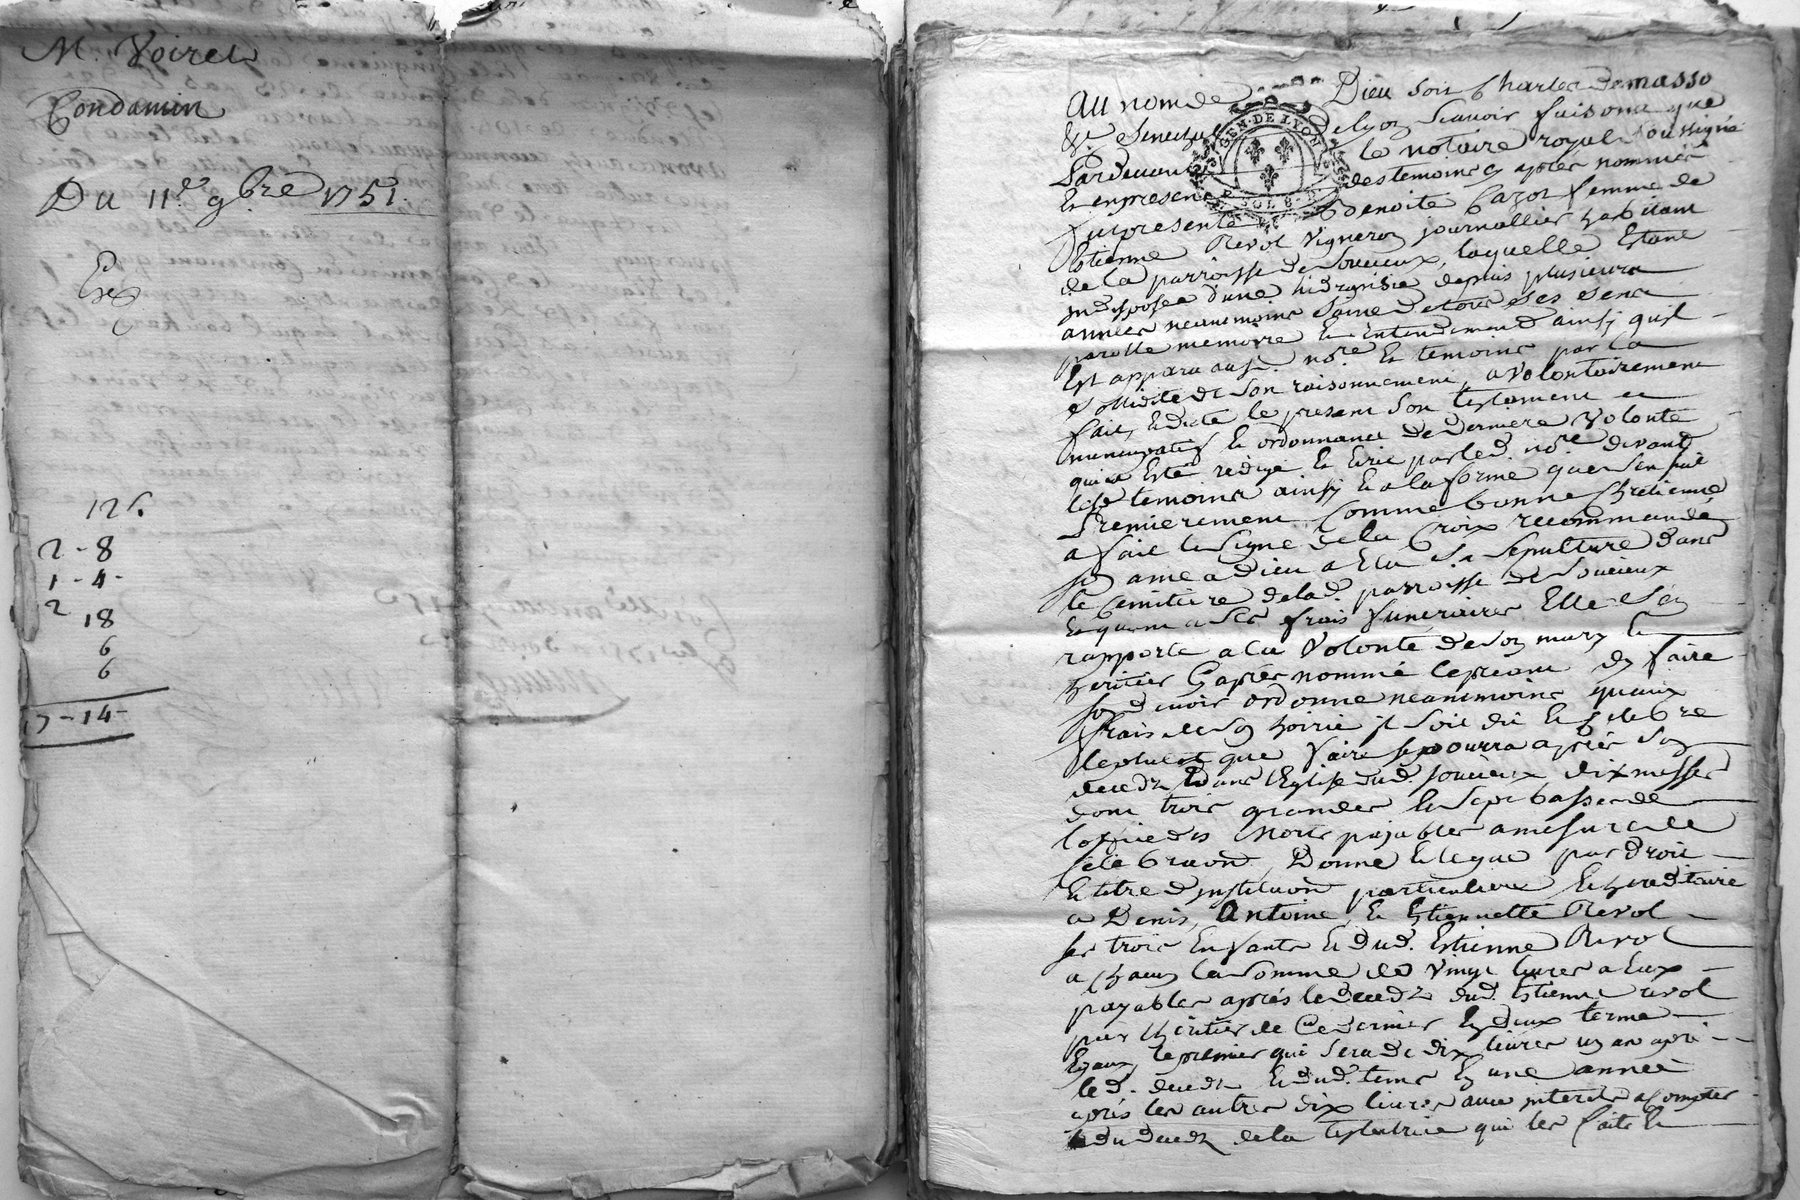 M. Voiret
Condamin
Du 11e. 9bre 1751.
12 s.
2 - 8
1 - 4 -
2 18
6
6
7 - 14 -
Au nom de Dieu soit Charles de masso
Senechal de lyon scavoir faisons que
Pardevant le notaire royal soussigné
Et en presence des temoins cy apres nommés
fut presente benoite femme de
Etienne Revol vigneron journallier habitant
de la parroisse de Soucieux, laquelle Estant
indisposée d'une hidropisie depuis plusieurs
années neanmoins saine de tous ses sens
parolle memoire et Entendement ainsy quil
Est apparu aud. nore et temoins par la
solidité de son raisonnement, a volontairement
fait, et dicté le present son testament
nuncupatif et ordonnance de derniere volonté
qui a Esté redigé et Ecrit par led. nore devant
lesd. temoins ainsy et a la forme que sensuit
Premierement comme bonne chrétienne
a fait le signe de la Croix recommandé
son ame a Dieu a Elu sa sepulture dans
le Cemitiere de lad. parroisse de Soucieux
Et quant a ses frais funeraires Elle s'en
rapporte a la volonté de son mary et
heritier cy apres nommé le priant dy faire
son devoir ordonne neanmoins quaux
frais de son hoirie il soit dit et celebré
le plustot que faire se pourra apres son
decedz dans l'Eglise dud. soucieux dix messes
dont trois grandes et sept basses de
loffice des morts payables a mesure de
celebration, Donne et legue par droit
Et titre d'institution particuliere et hereditaire
a Denis, Antoine, et Etiennette Revol
ses trois Enfants et dud. Estienne Revol
a chacun la somme de vingt livres a Eux
payables aprés le decedz dud. Estienne revol
par l'heritier de Ce dernier En deux terme
Egaux, le premier qui sera de dix livres un an apré
led. decedz et dud. tems En une année
aprés les autres dix livres avec interets a compter
dud. decedz de la testatrice qui les faits et